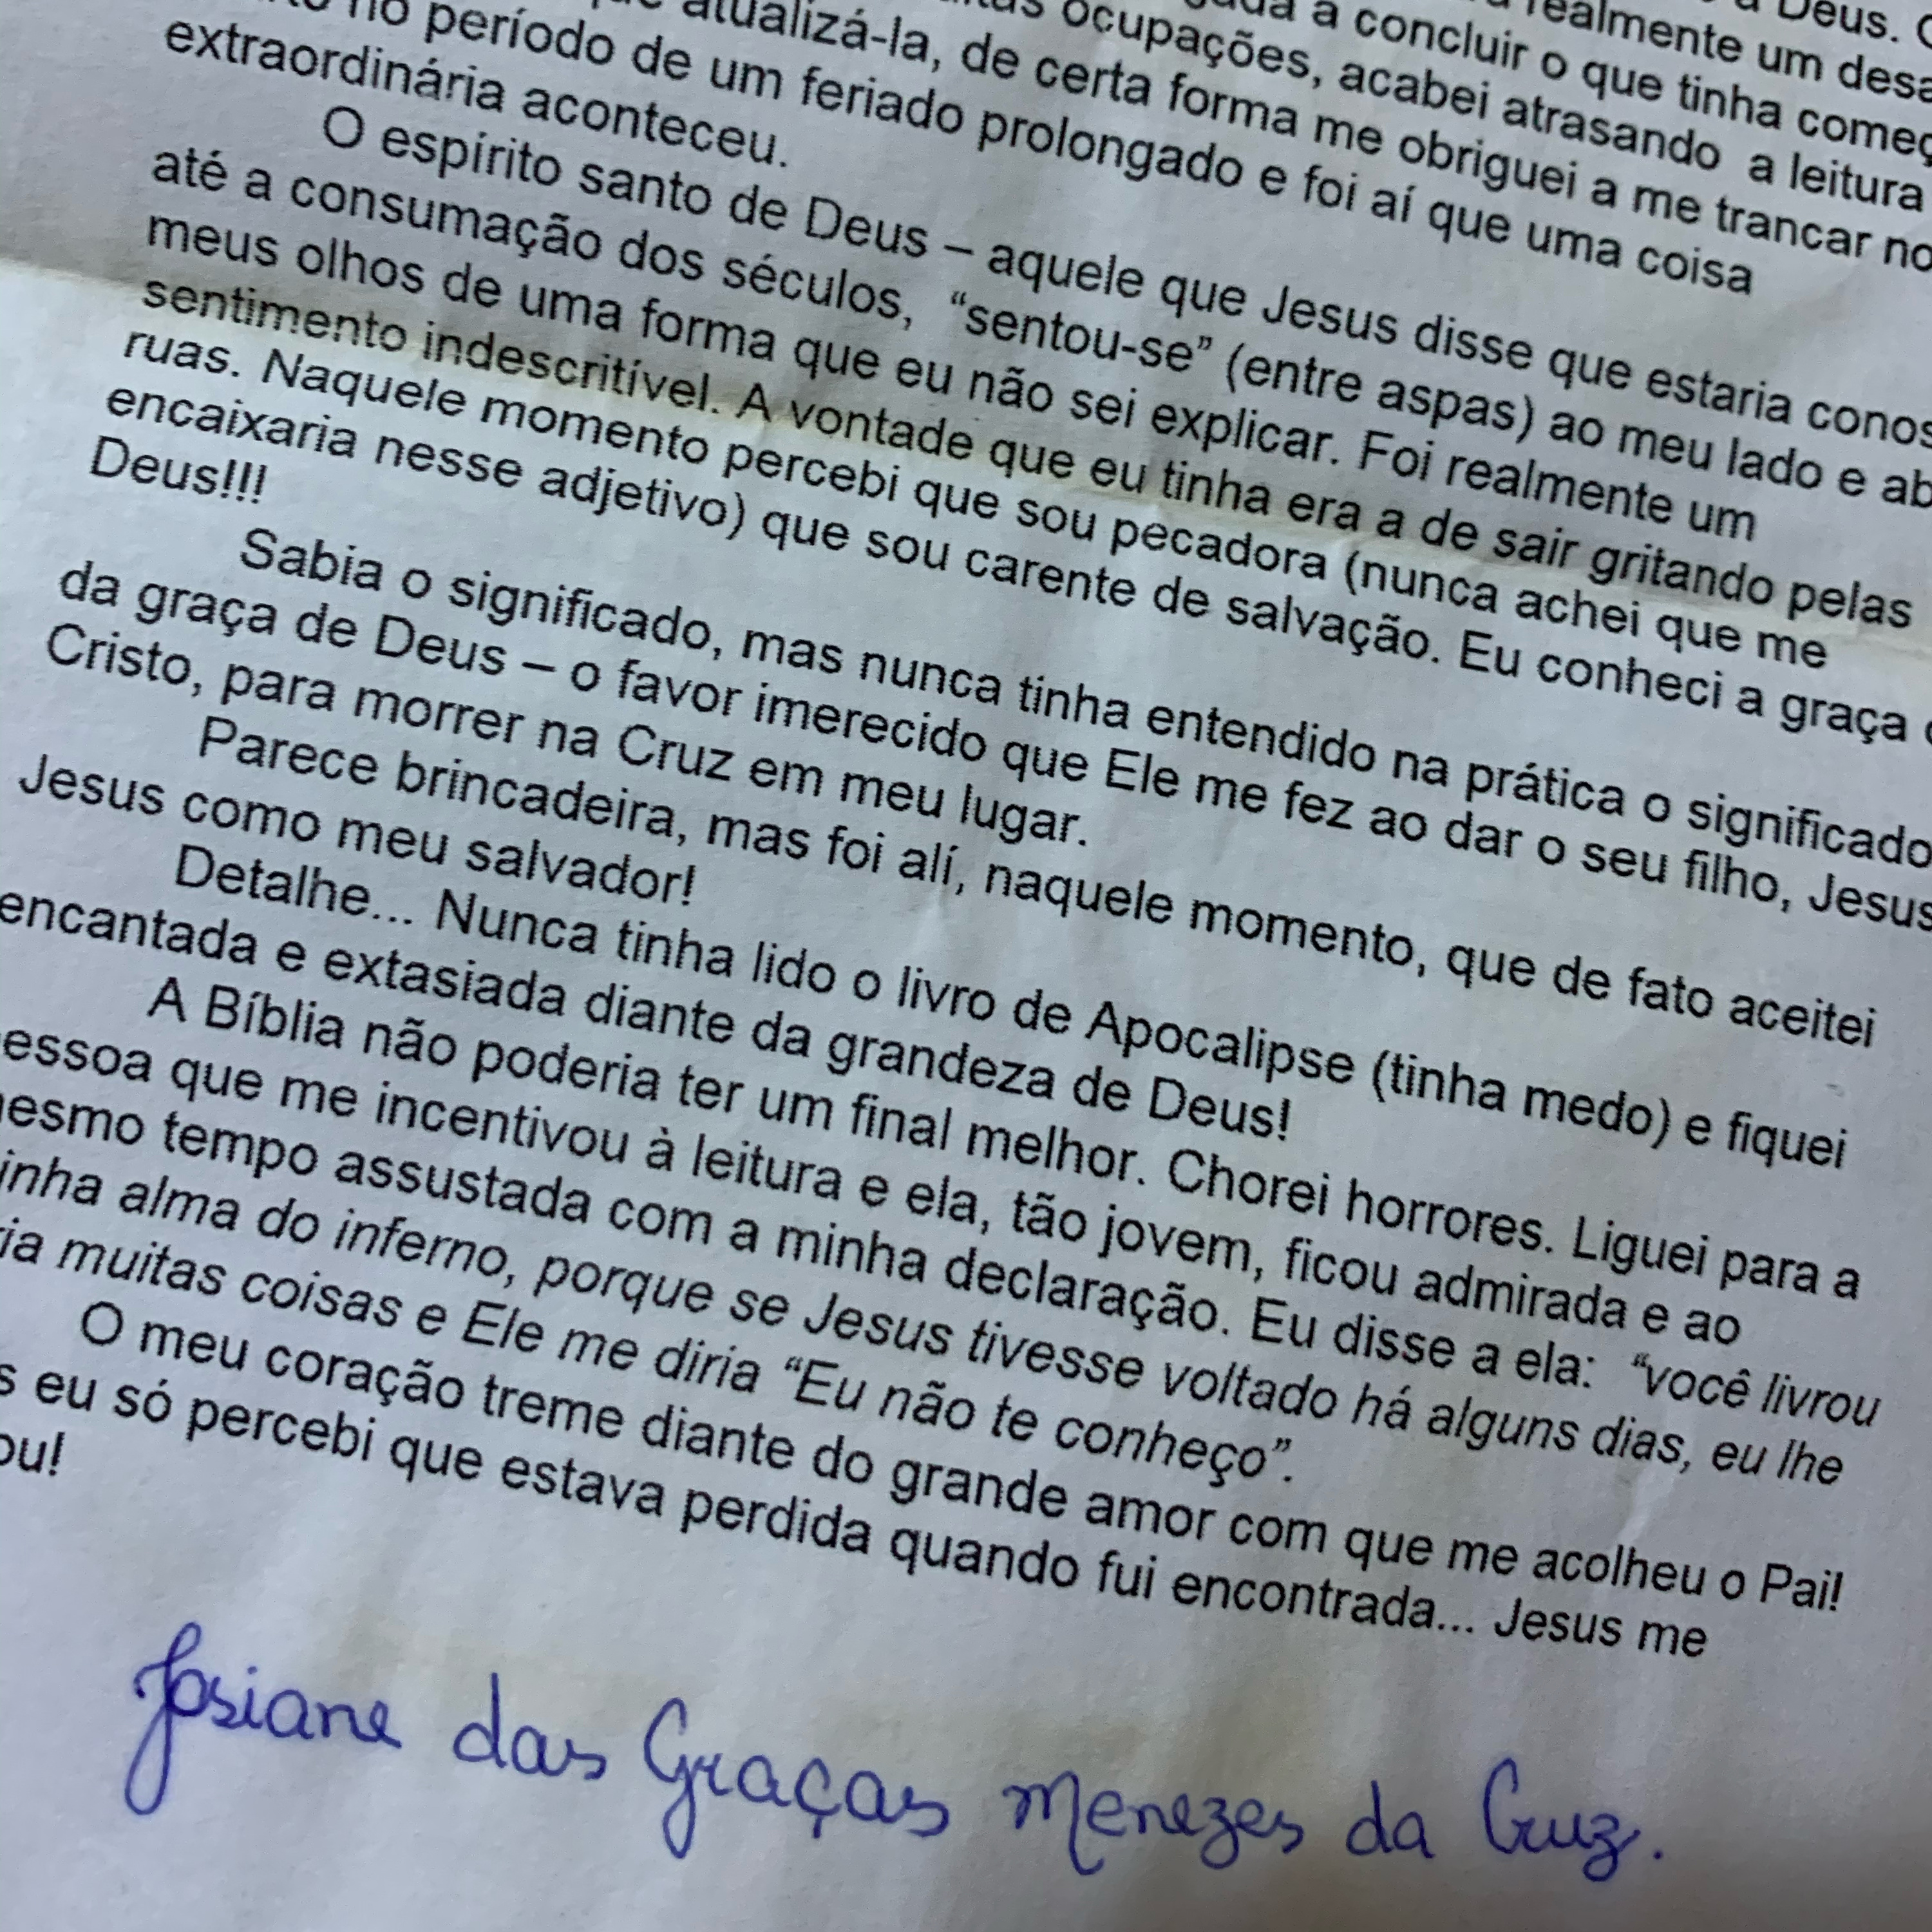 a Deus.
realmente um
a concluir o que tinha
ocupações, acabei atrasando a leitura
atualizá-la, de certa forma me obriguei a me trancar no
no período de um feriado prolongado e foi aí que uma coisa
extraordinária aconteceu.
O espírito santo de Deus – aquele que Jesus disse que estaria
até a consumação dos séculos, “sentou-se” (entre aspas) ao meu lado e
meus olhos de uma forma que eu não sei explicar. Foi realmente um
sentimento indescritível. A vontade que eu tinha era a de sair gritando pelas
ruas. Naquele momento percebi que sou pecadora (nunca achei que me
encaixaria nesse adjetivo) que sou carente de salvação. Eu conheci a graça
Deus!!!
Sabia o significado, mas nunca tinha entendido na prática o significado
da graça de Deus – o favor imerecido que Ele me fez ao dar o seu filho, Jesus
Cristo, para morrer na Cruz em meu lugar.
Parece brincadeira, mas foi alí, naquele momento, que de fato aceitei
Jesus como meu salvador!
Detalhe... Nunca tinha lido o livro de Apocalipse (tinha medo) e fiquei
encantada e extasiada diante da grandeza de Deus!
A Bíblia não poderia ter um final melhor. Chorei horrores. Liguei para a
essoa que me incentivou à leitura e ela, tão jovem, ficou admirada e ao
esmo tempo assustada com a minha declaração. Eu disse a ela: “você livrou
inha alma do inferno, porque se Jesus tivesse voltado há alguns dias, eu lhe
ia muitas coisas e Ele me diria “Eu não te conheço”.
O meu coração treme diante do grande amor com que me acolheu o Pai!
s eu só percebi que estava perdida quando fui encontrada... Jesus me
ou!
Josiane das Graças Menezes da Cruz.